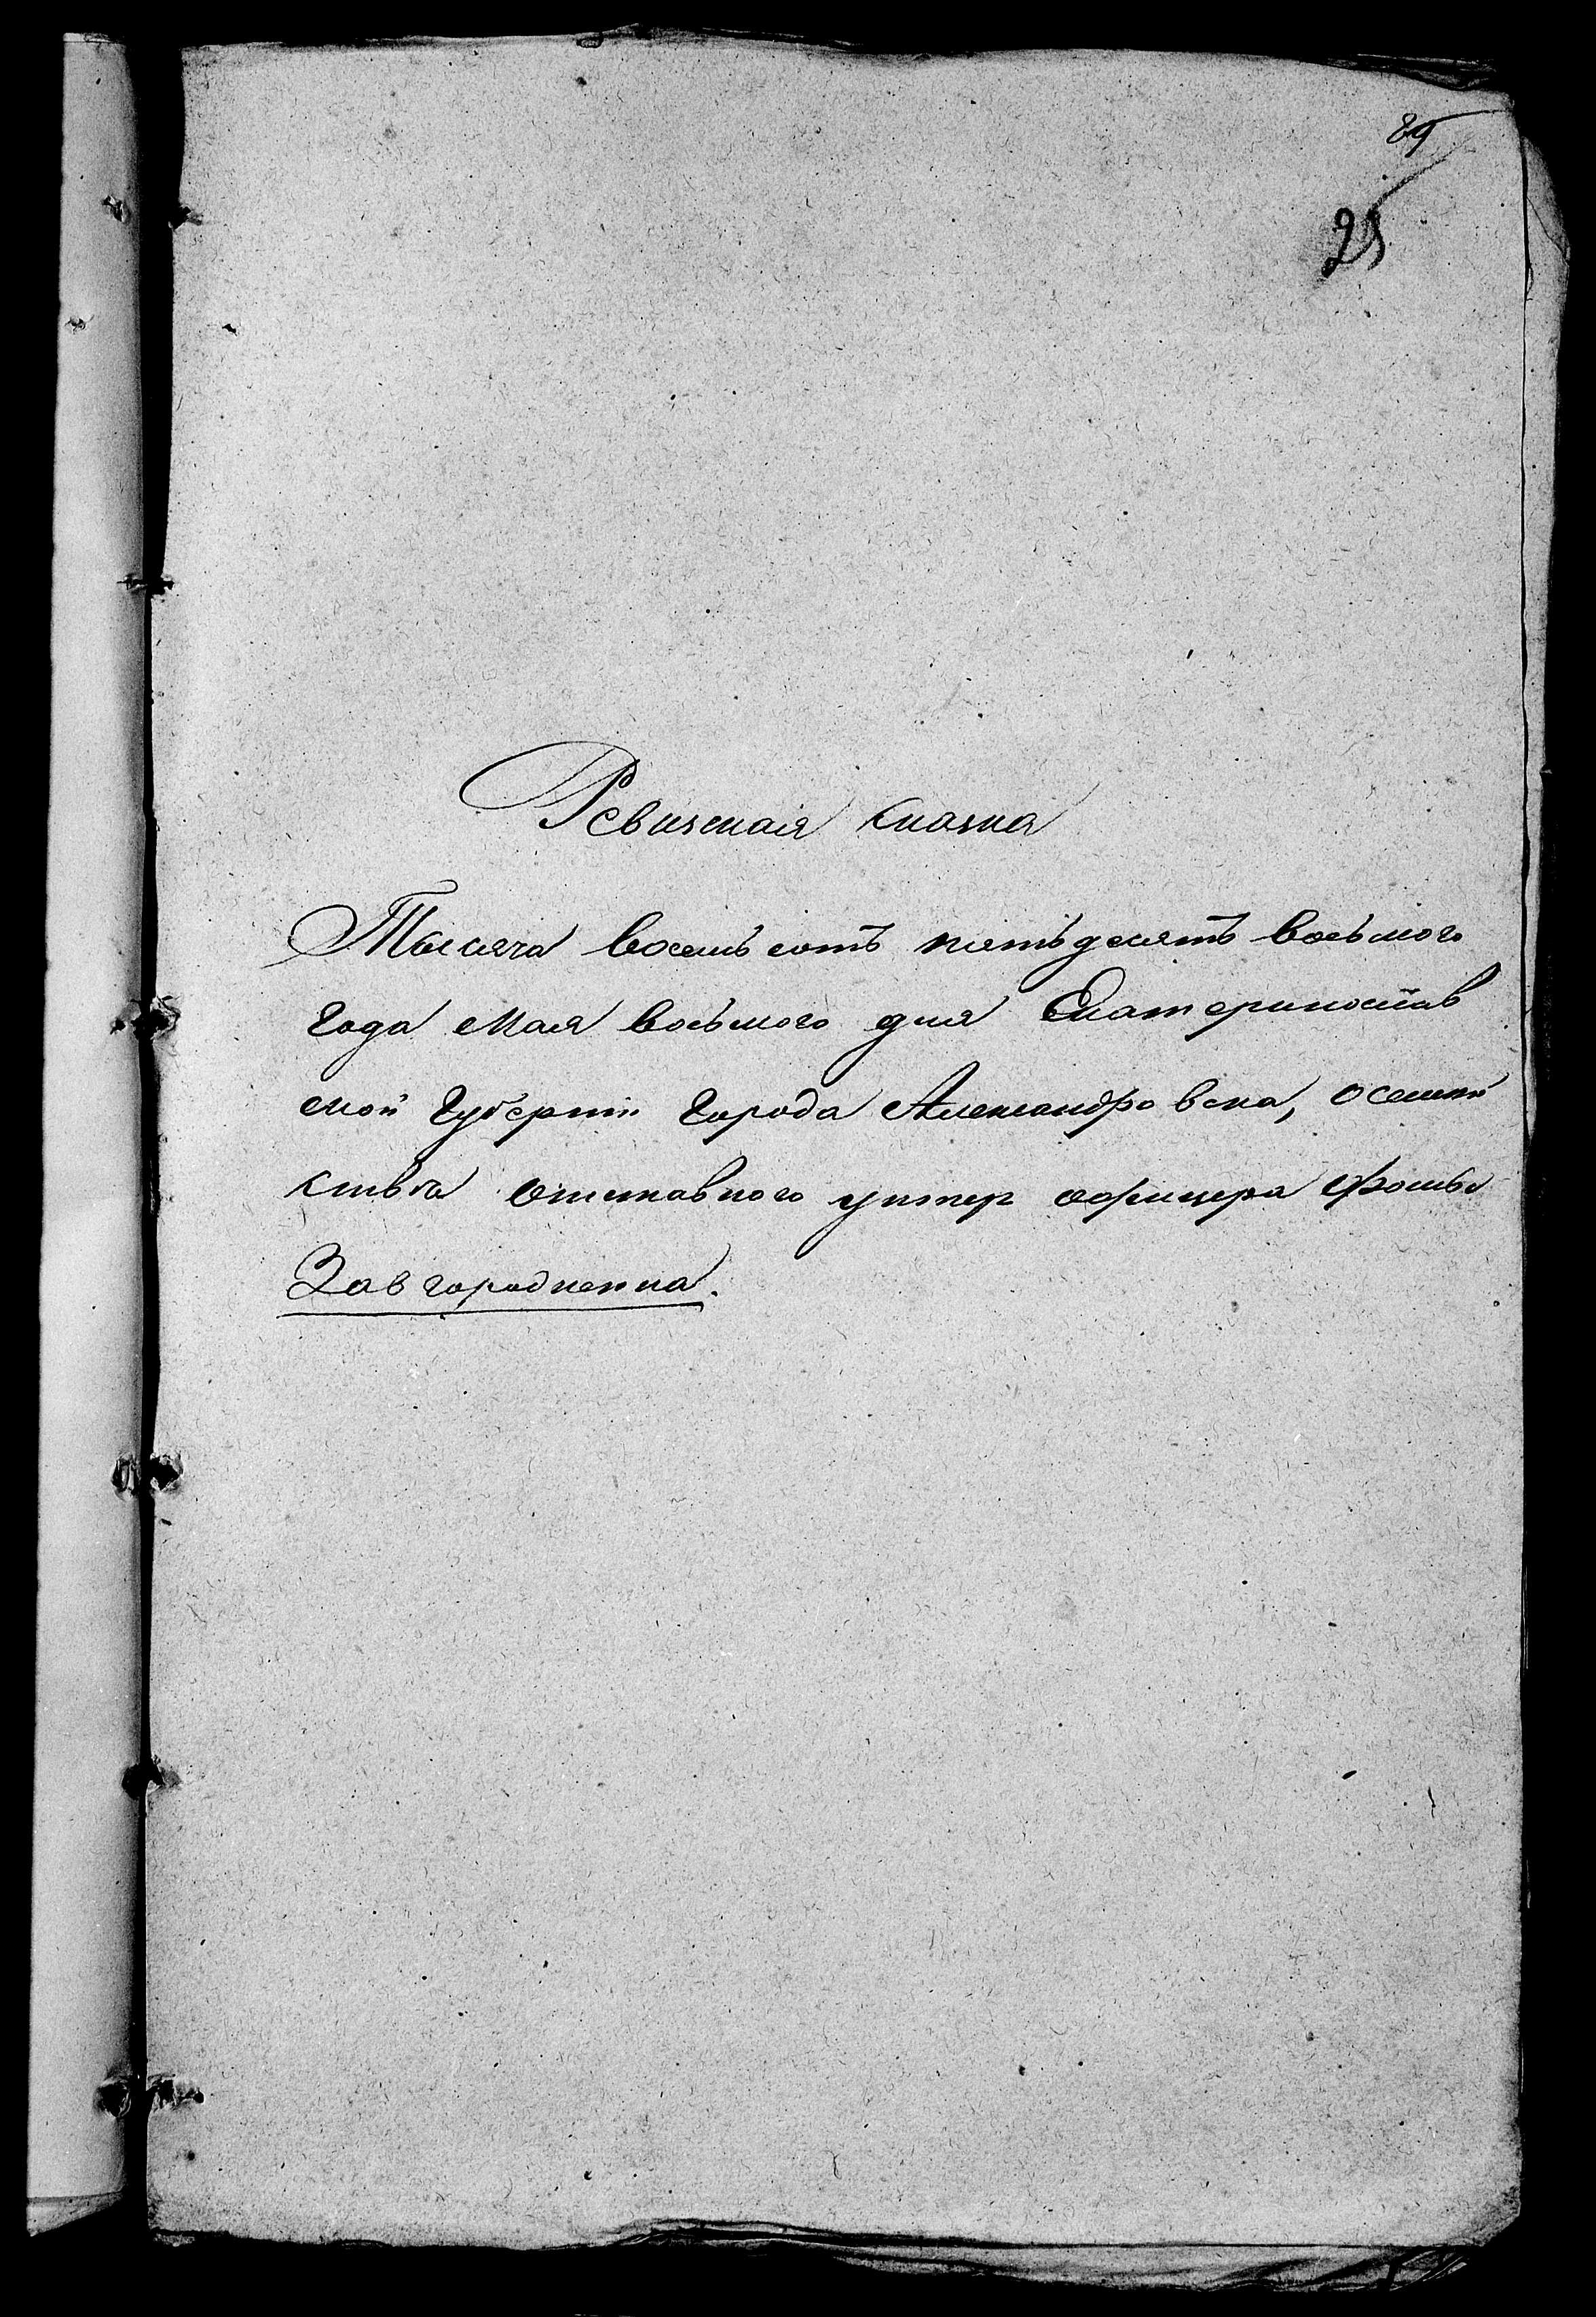 89
25
Ревизская сказка
Тысяча восемь сотъ пятьдесятъ восьмого
года мая восьмого дня Екатеринослав
ской губернии города Александровска, о семей
ства отставного унтер офицера Фомы
Завгородненка.